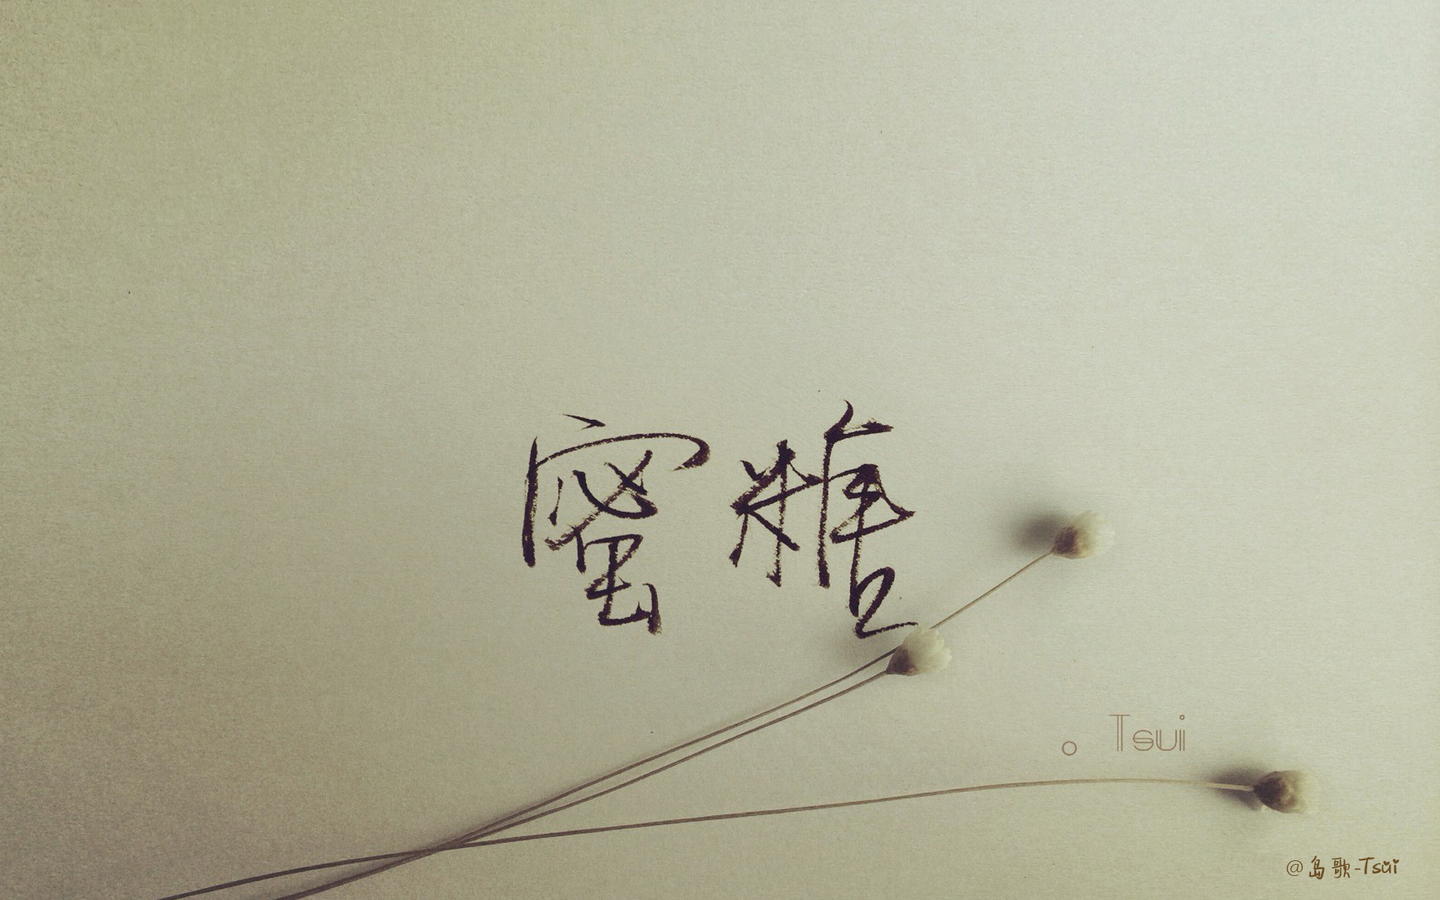 蜜糖
。Tsui
@岛歌-Tsui